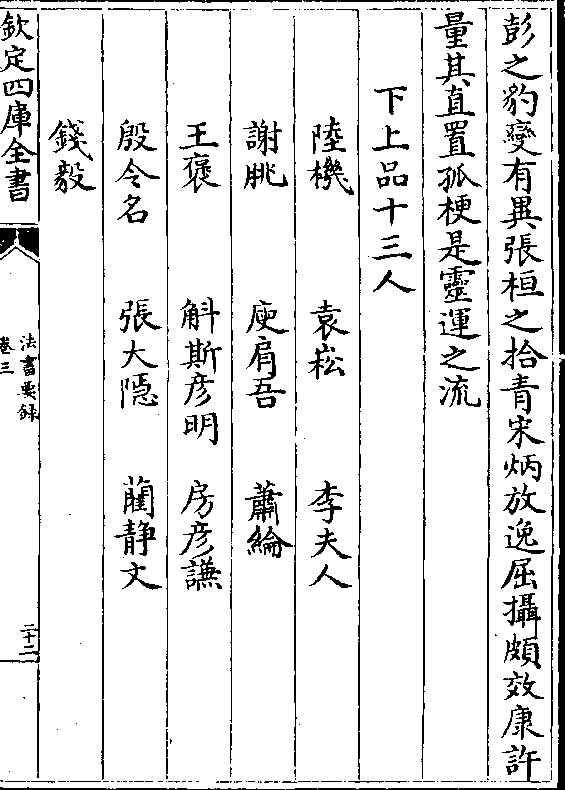 彭之豹變有異張桓之拾青宋炳放逸屈攝頗效康許
量其直置孤梗是靈運之流
下上品十三人
陸機 袁崧 李夫人
謝朓 庾肩吾 蕭綸
王褒 斛斯彦明 房彦謙
殷令名 張大隱 藺静文
錢毅
欽定四庫全書 法書要録 卷三 二十二